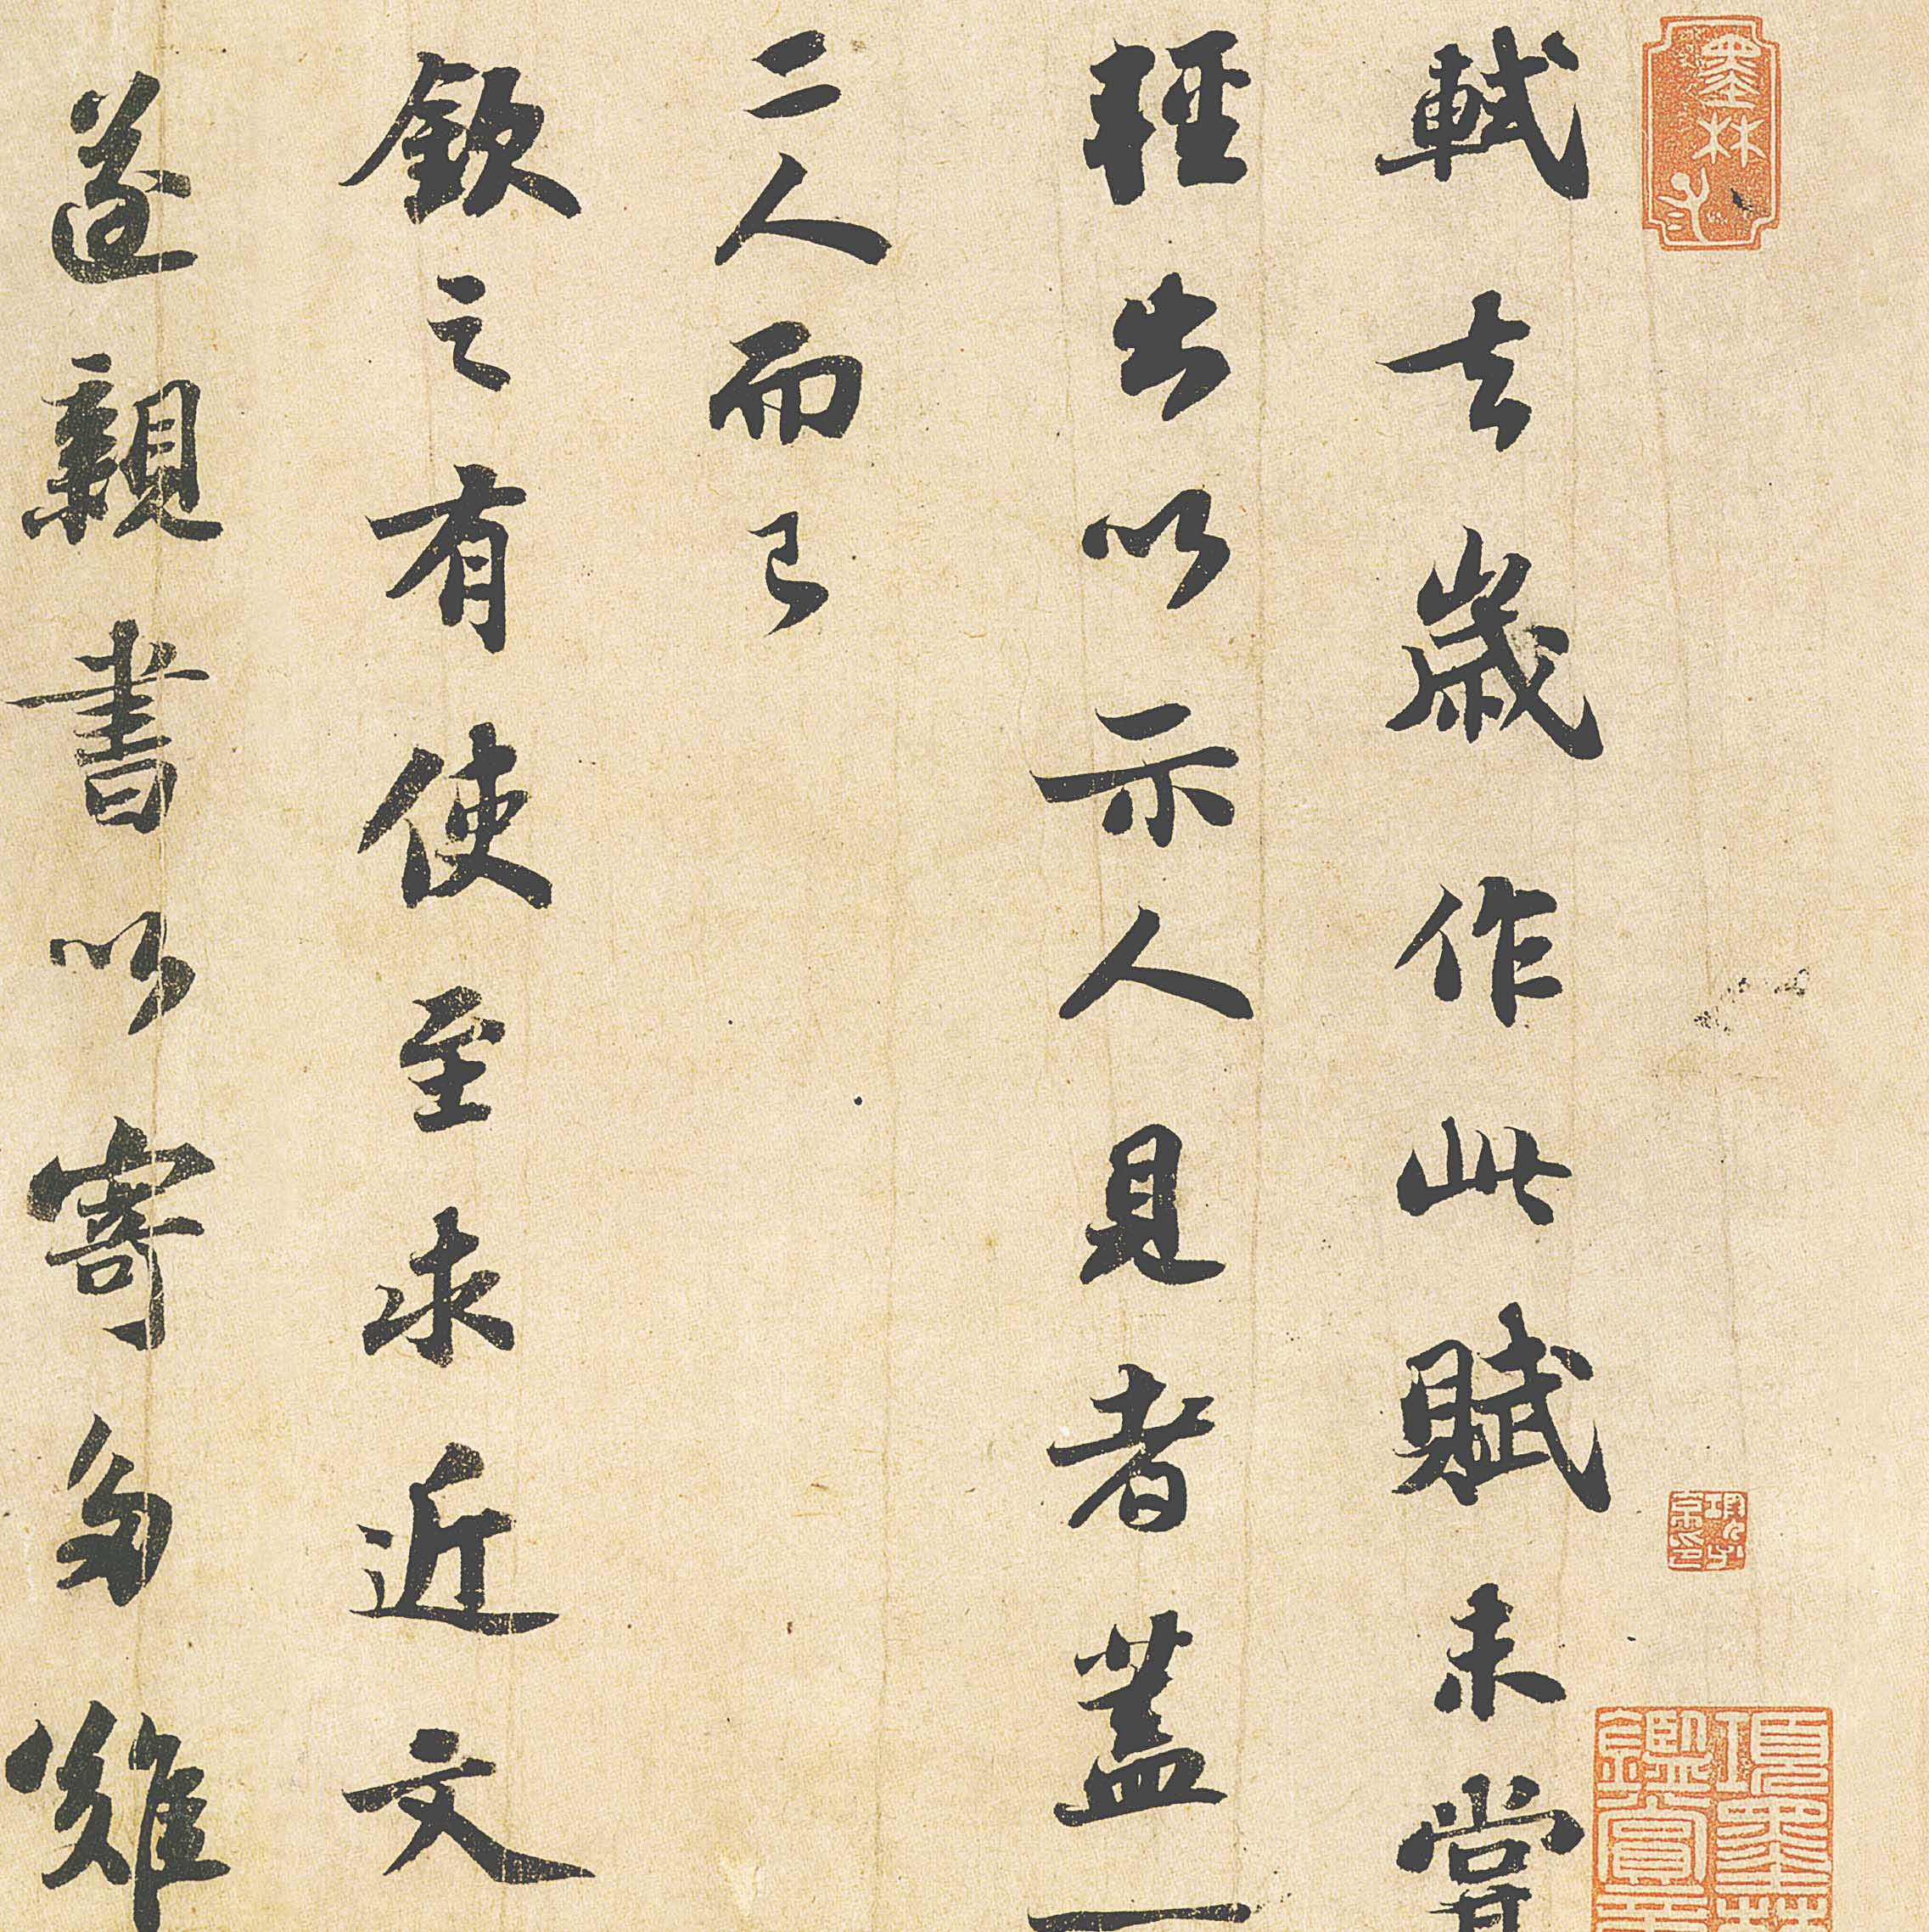 墨林
項墨林
鑑賞章
軾去歲作此賦未嘗
輕出以示人見者蓋一
二人而已
欽之有使至求近文
遂親書以寄多難